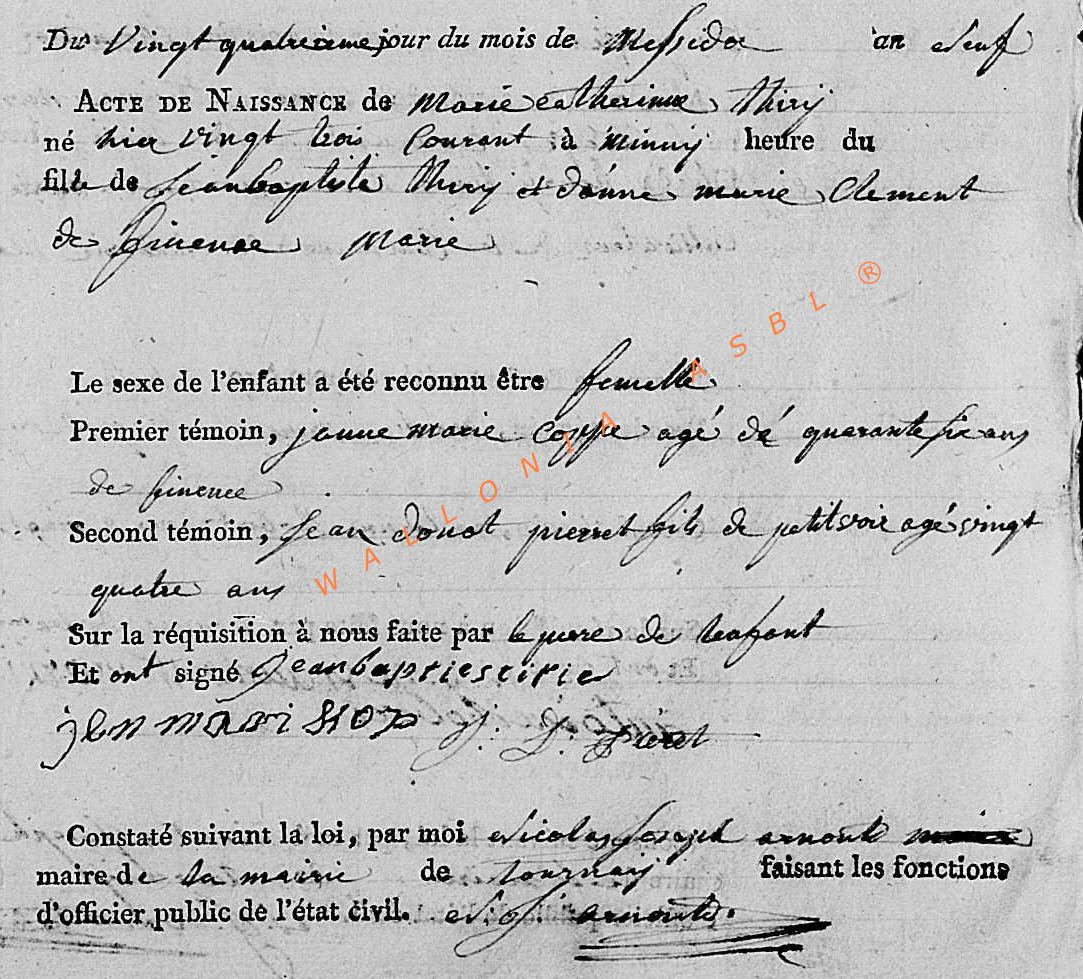 Du Vingt quatreieme jour du mois de Messidor an neuf
ACTE DE NAISSANCE de Marie catherinne thiry
né hier vingt trois Courant à minuij heure du
fille de Jeanbaptiste thiry et d'anne marie Clement
de finenne Marie
Le sexe de l'enfant a été reconnu être femelle
Premier témoin, janne marie Coppe agé dé quarante six ans
de finence
Second témoin, Jean donot pierret fils de petitvoir agé vingt
quatre ans
Sur la réquisition à nous faite par le pere de leafant
Et ont signé Jeanbaptiestirie
jen mari kop J. D. Pieret
Constaté suivant la loi, par moi Nicolas Joseph arnould
maire de la mairie de tournay faisant les fonctions
d'officier public de l'état civil. N. J. arnould.
WALLONIA ASBL ®